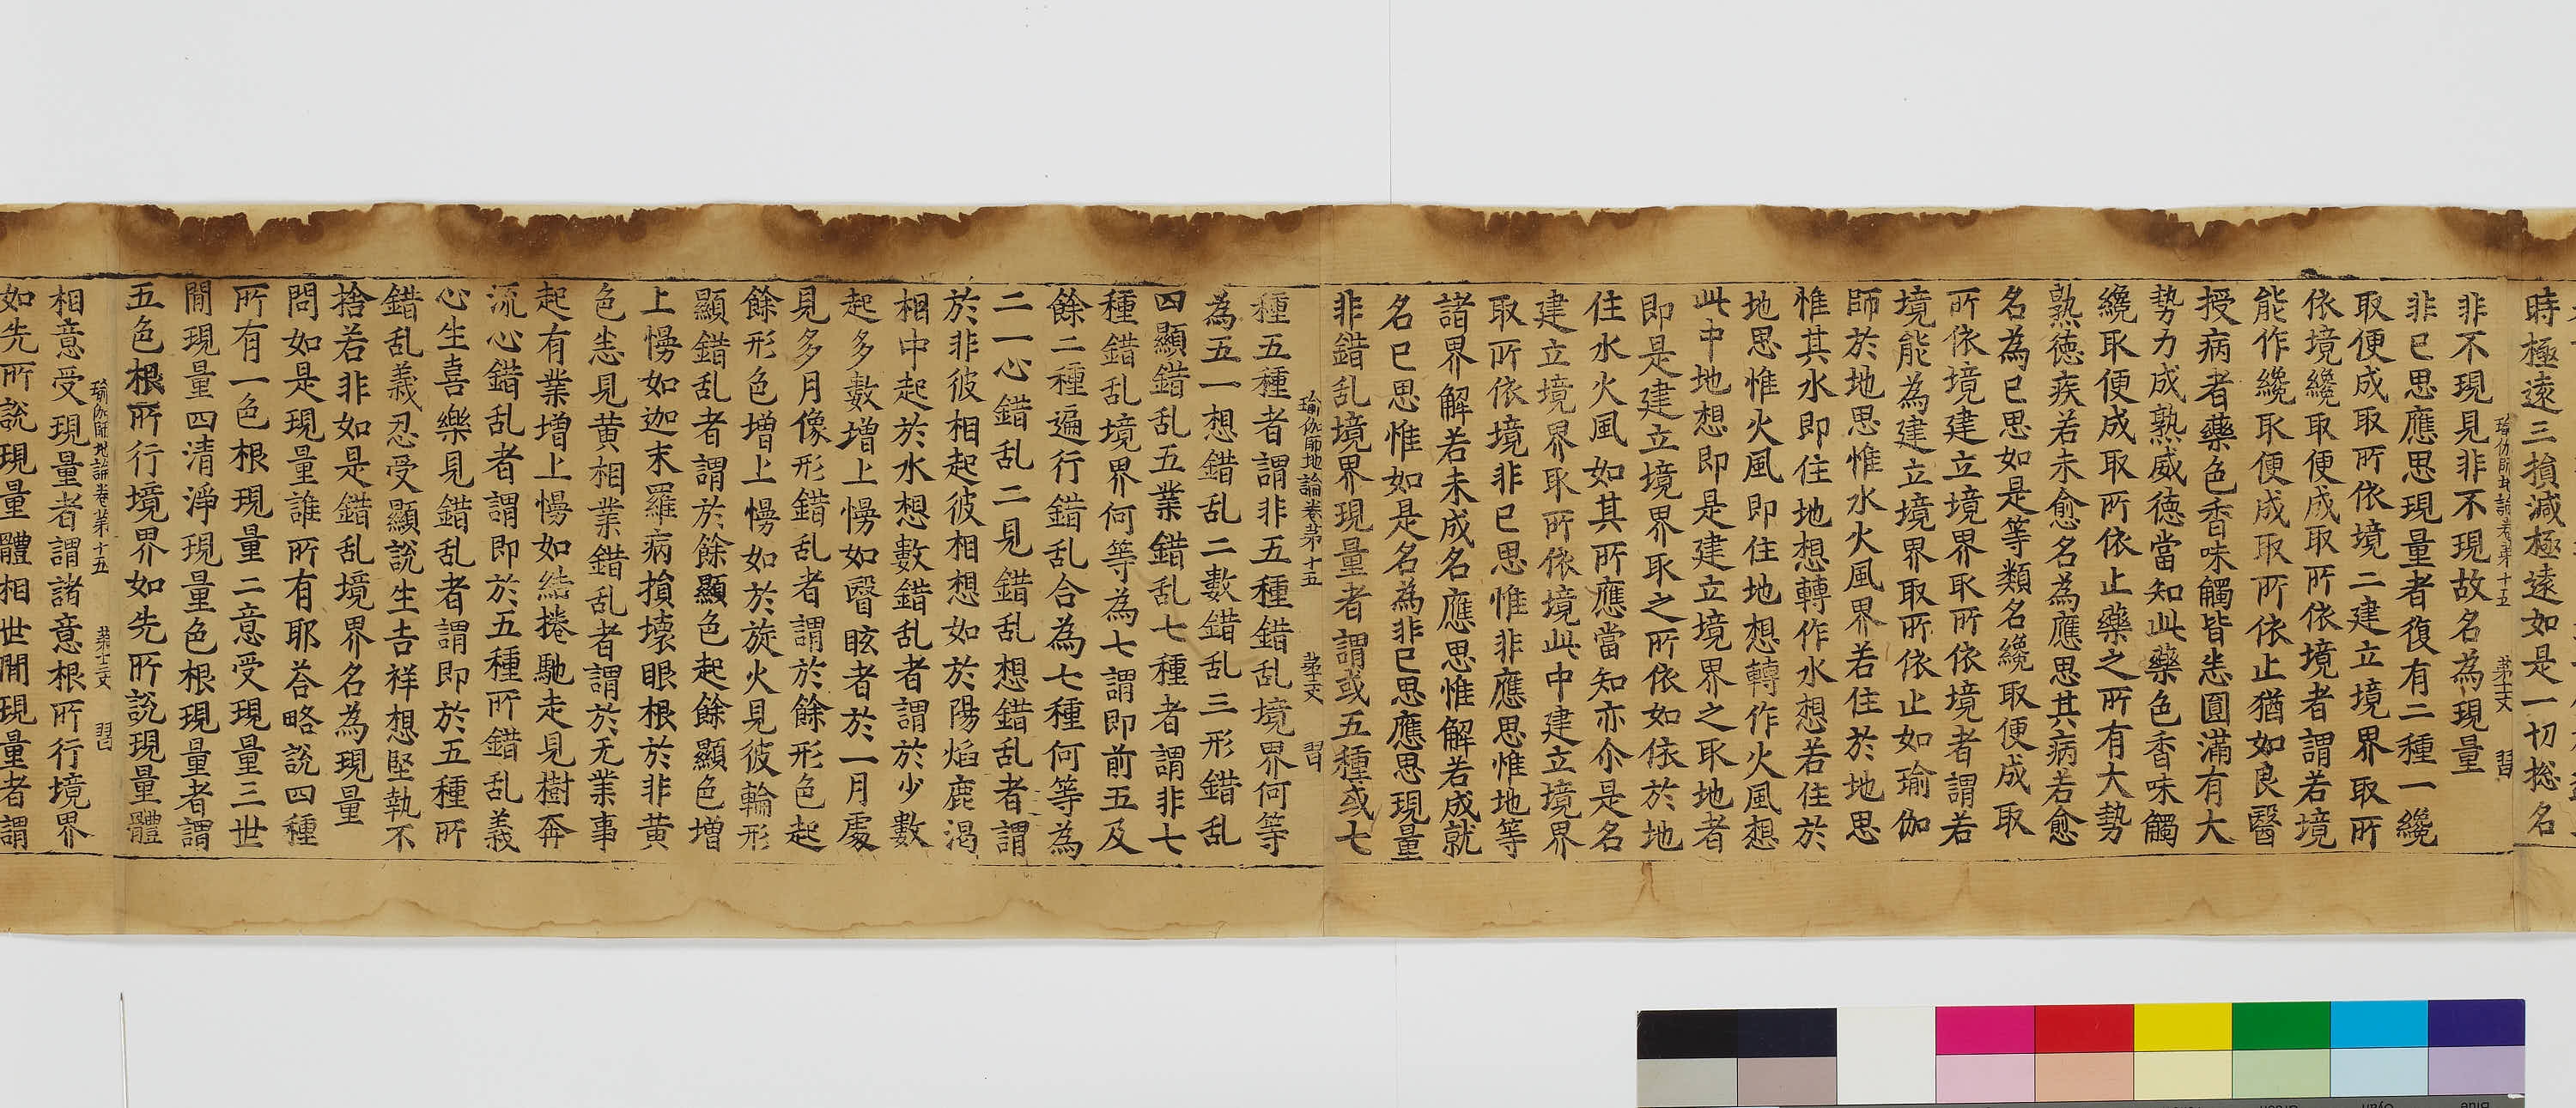 時極遠三損減極遠如是一切揔名
瑜伽師地論卷第十五 習
非不現見非不現故名為現量
非已思應思現量者復有二種一纔
取便成取所依境二建立境界取所
依境纔取便成取所依境者謂若境
能作纔取便成取所依止猶如良醫
授病者藥色香味觸皆悉圓滿有大
勢力成熟威德當知此藥色香味觸
纔取便成取所依止藥之所有大勢
熟德疾若未愈名為應思其病若愈
名為已思如是等類名纔取便成取
所依境建立境界取所依境者謂若
境能為建立境界取所依止如瑜伽
師於地思惟水火風界若住於地思
惟其水即住地想轉作水想若住於
地思惟火風即住地想轉作火風想
此中地想即是建立境界之取地者
即是建立境界取之所依如依於地
住水火風如其所應當知亦尒是名
建立境界取所依境此中建立境界
取所依境非已思惟非應思惟地等
諸界解若未成名應思惟解若成就
名已思惟如是名為非已思應思現量
非錯乱境界現量者謂或五種或七
瑜伽師地論卷第十五 習
種五種者謂非五種錯乱境界何等
為五一想錯乱二數錯乱三形錯乱
四顯錯乱五業錯乱七種者謂非七
種錯乱境界何等為七謂即前五及
餘二種遍行錯乱合為七種何等為
二一心錯乱二見錯乱想錯乱者謂
於非彼相起彼相想如於陽焰鹿渴
相中起於水想數錯乱者謂於少數
起多數增上慢如瞖眩者於一月處
見多月像形錯乱者謂於餘形色起
餘形色增上慢如於旋火見彼輪形
顯錯乱者謂於餘顯色起餘顯色增
上慢如迦末羅病損壞眼根於非黃
色悉見黃相業錯乱者謂於无業事
起有業增上慢如結捲馳走見樹奔
流心錯乱者謂即於五種所錯乱義
心生喜樂見錯乱者謂即於五種所
錯乱義忍受顯說生吉祥想堅執不
捨若非如是錯乱境界名為現量
問如是現量誰所有耶荅略說四種
所有一色根現量二意受現量三世
間現量四清淨現量色根現量者謂
五色根所行境界如先所說現量體
瑜伽師地論卷第十五 第十二丈 習
相意受現量者謂諸意根所行境界
如先所說現量體相世間現量者謂